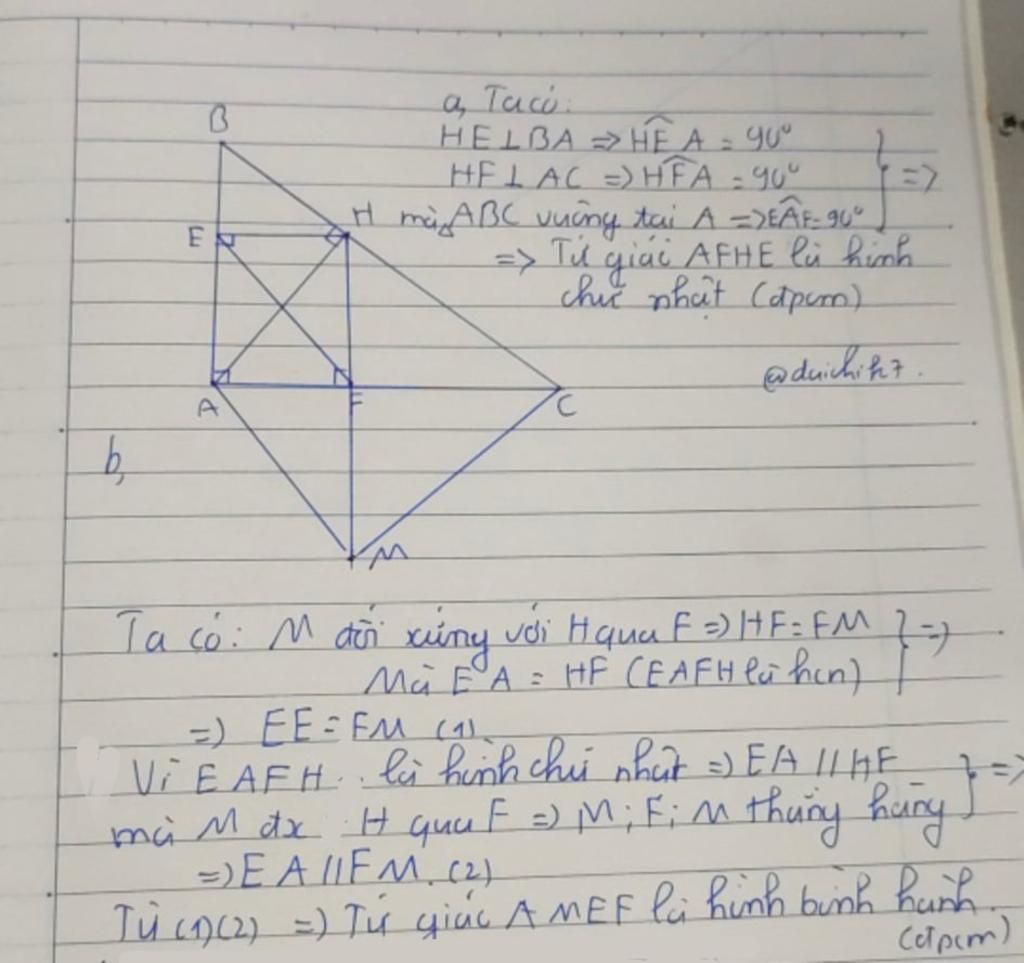 a, Ta có:
HE⊥BA => HÊA = 90°
HF⊥AC => HF̂A = 90° } =>
mà △ABC vuông tại A => EÂF = 90°
=> Tứ giác AFHE là hình
chữ nhật (đpcm)
@duichih7.
B
H
E
A
F
C
M
b,
Ta có: M đối xứng với H qua F => HF = FM } =>
Mà EA = HF (EAFH là hcn)
=> EE = FM (1)
Vì EAFH là hình chữ nhật => EA // HF } =>
mà M đx H qua F => M; F; M thẳng hàng
=> EA // FM. (2)
Từ (1)(2) => Tứ giác AMEF là hình bình hành.
(đpcm)